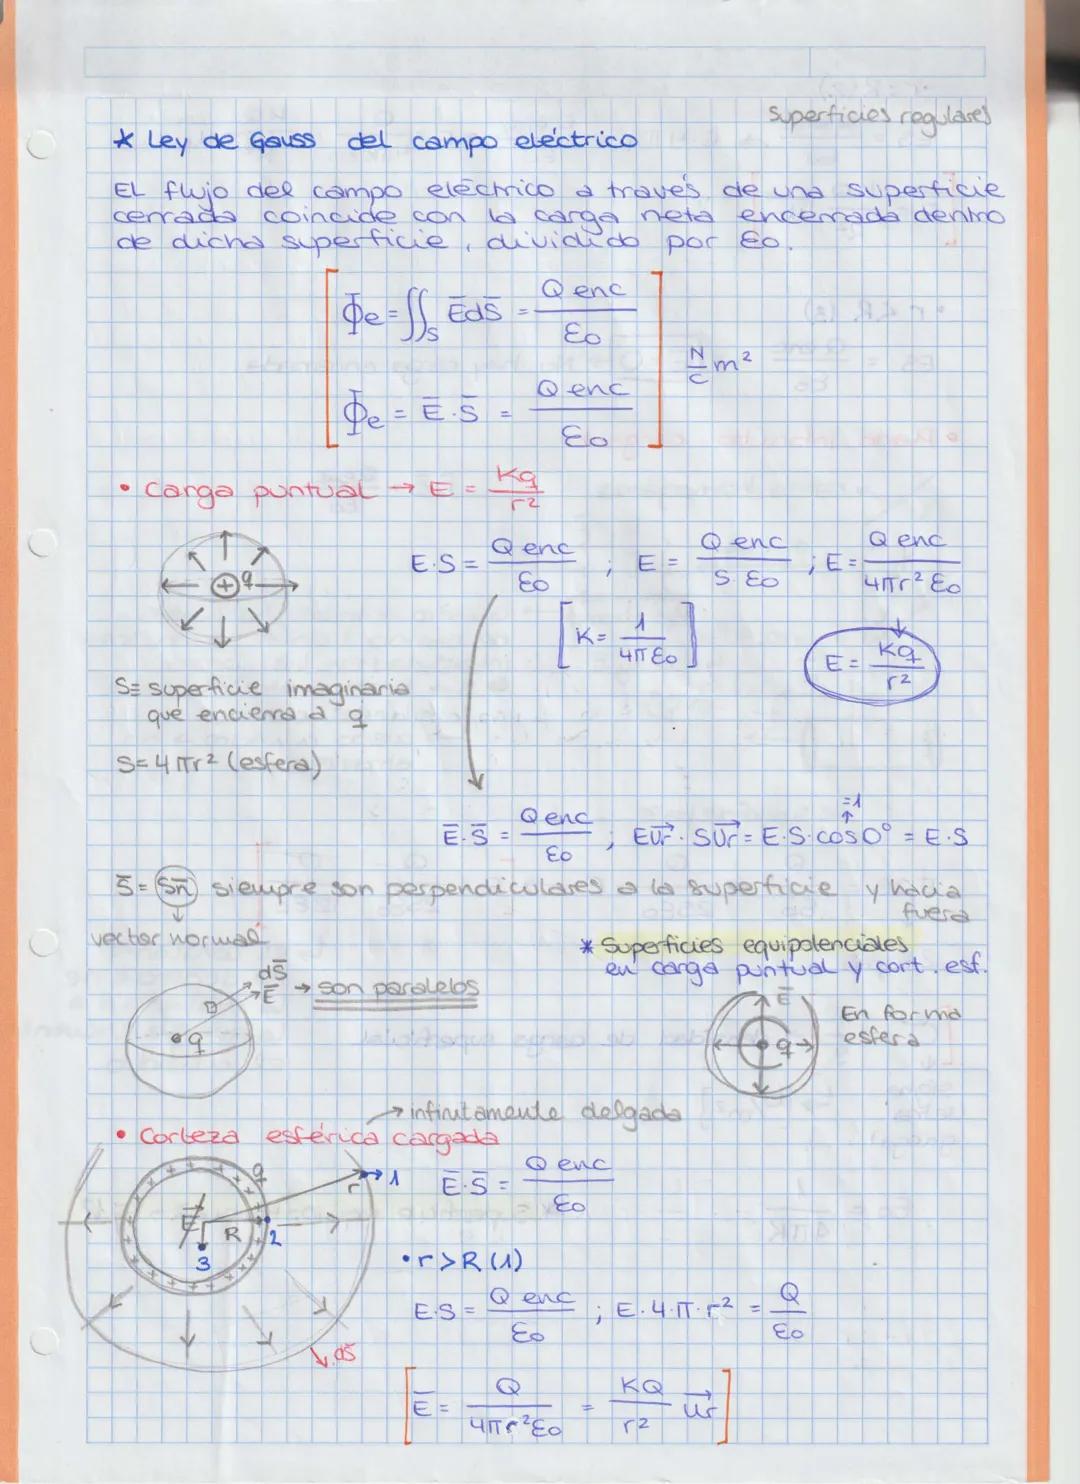 Superficies regulares
* Ley de Gauss del campo eléctrico
El flujo del campo eléctrico a través de una superficie
cerrada coincide con la carga neta encerrada dentro
de dicha superficie, dividido por ε0.
Φe = ∬s Ē dS̄ = Q enc / ε0
N/C m²
Φe = Ē · S̄ = Q enc / ε0
• Carga puntual → E = Kq / r²
q
E·S = Q enc / ε0 ; E = Q enc / S·ε0 ; E = Q enc / 4πr² ε0
[K = 1 / 4π ε0]
E = Kq / r²
S≡ superficie imaginaria
que encierra a q
S=4πr² (esfera)
Ē·S̄ = Q enc / ε0 ; E u⃗r · S u⃗r = E·S·cos0° = E·S
=1
S̄ = Sn̄ siempre son perpendiculares a la superficie y hacia
fuera
vector normal
* Superficies equipolenciales
en carga puntual y cort. esf.
dS̄
Ē → son paralelos
q
Ē
q
En forma
esfera
→ infinitamente delgada
• Corteza esférica cargada
q
r
1
Ē
R
2
3
dS
Ē·S̄ = Q enc / ε0
• r>R (1)
E·S = Q enc / ε0 ; E·4·π·r² = Q / ε0
Ē = Q / 4πr²ε0 = KQ / r² u⃗r